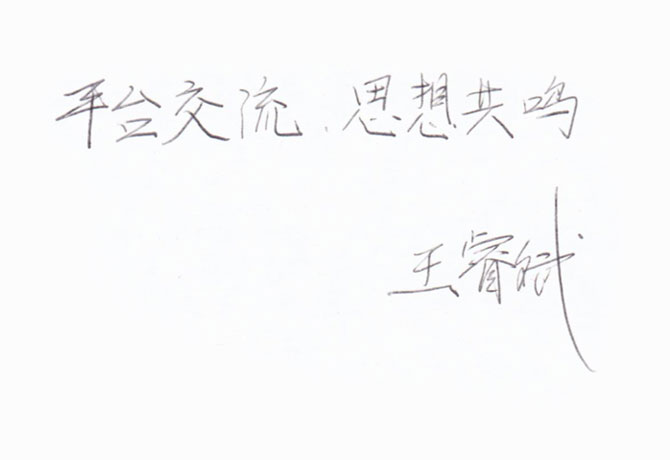 平台交流、思想共鸣
王睿斌